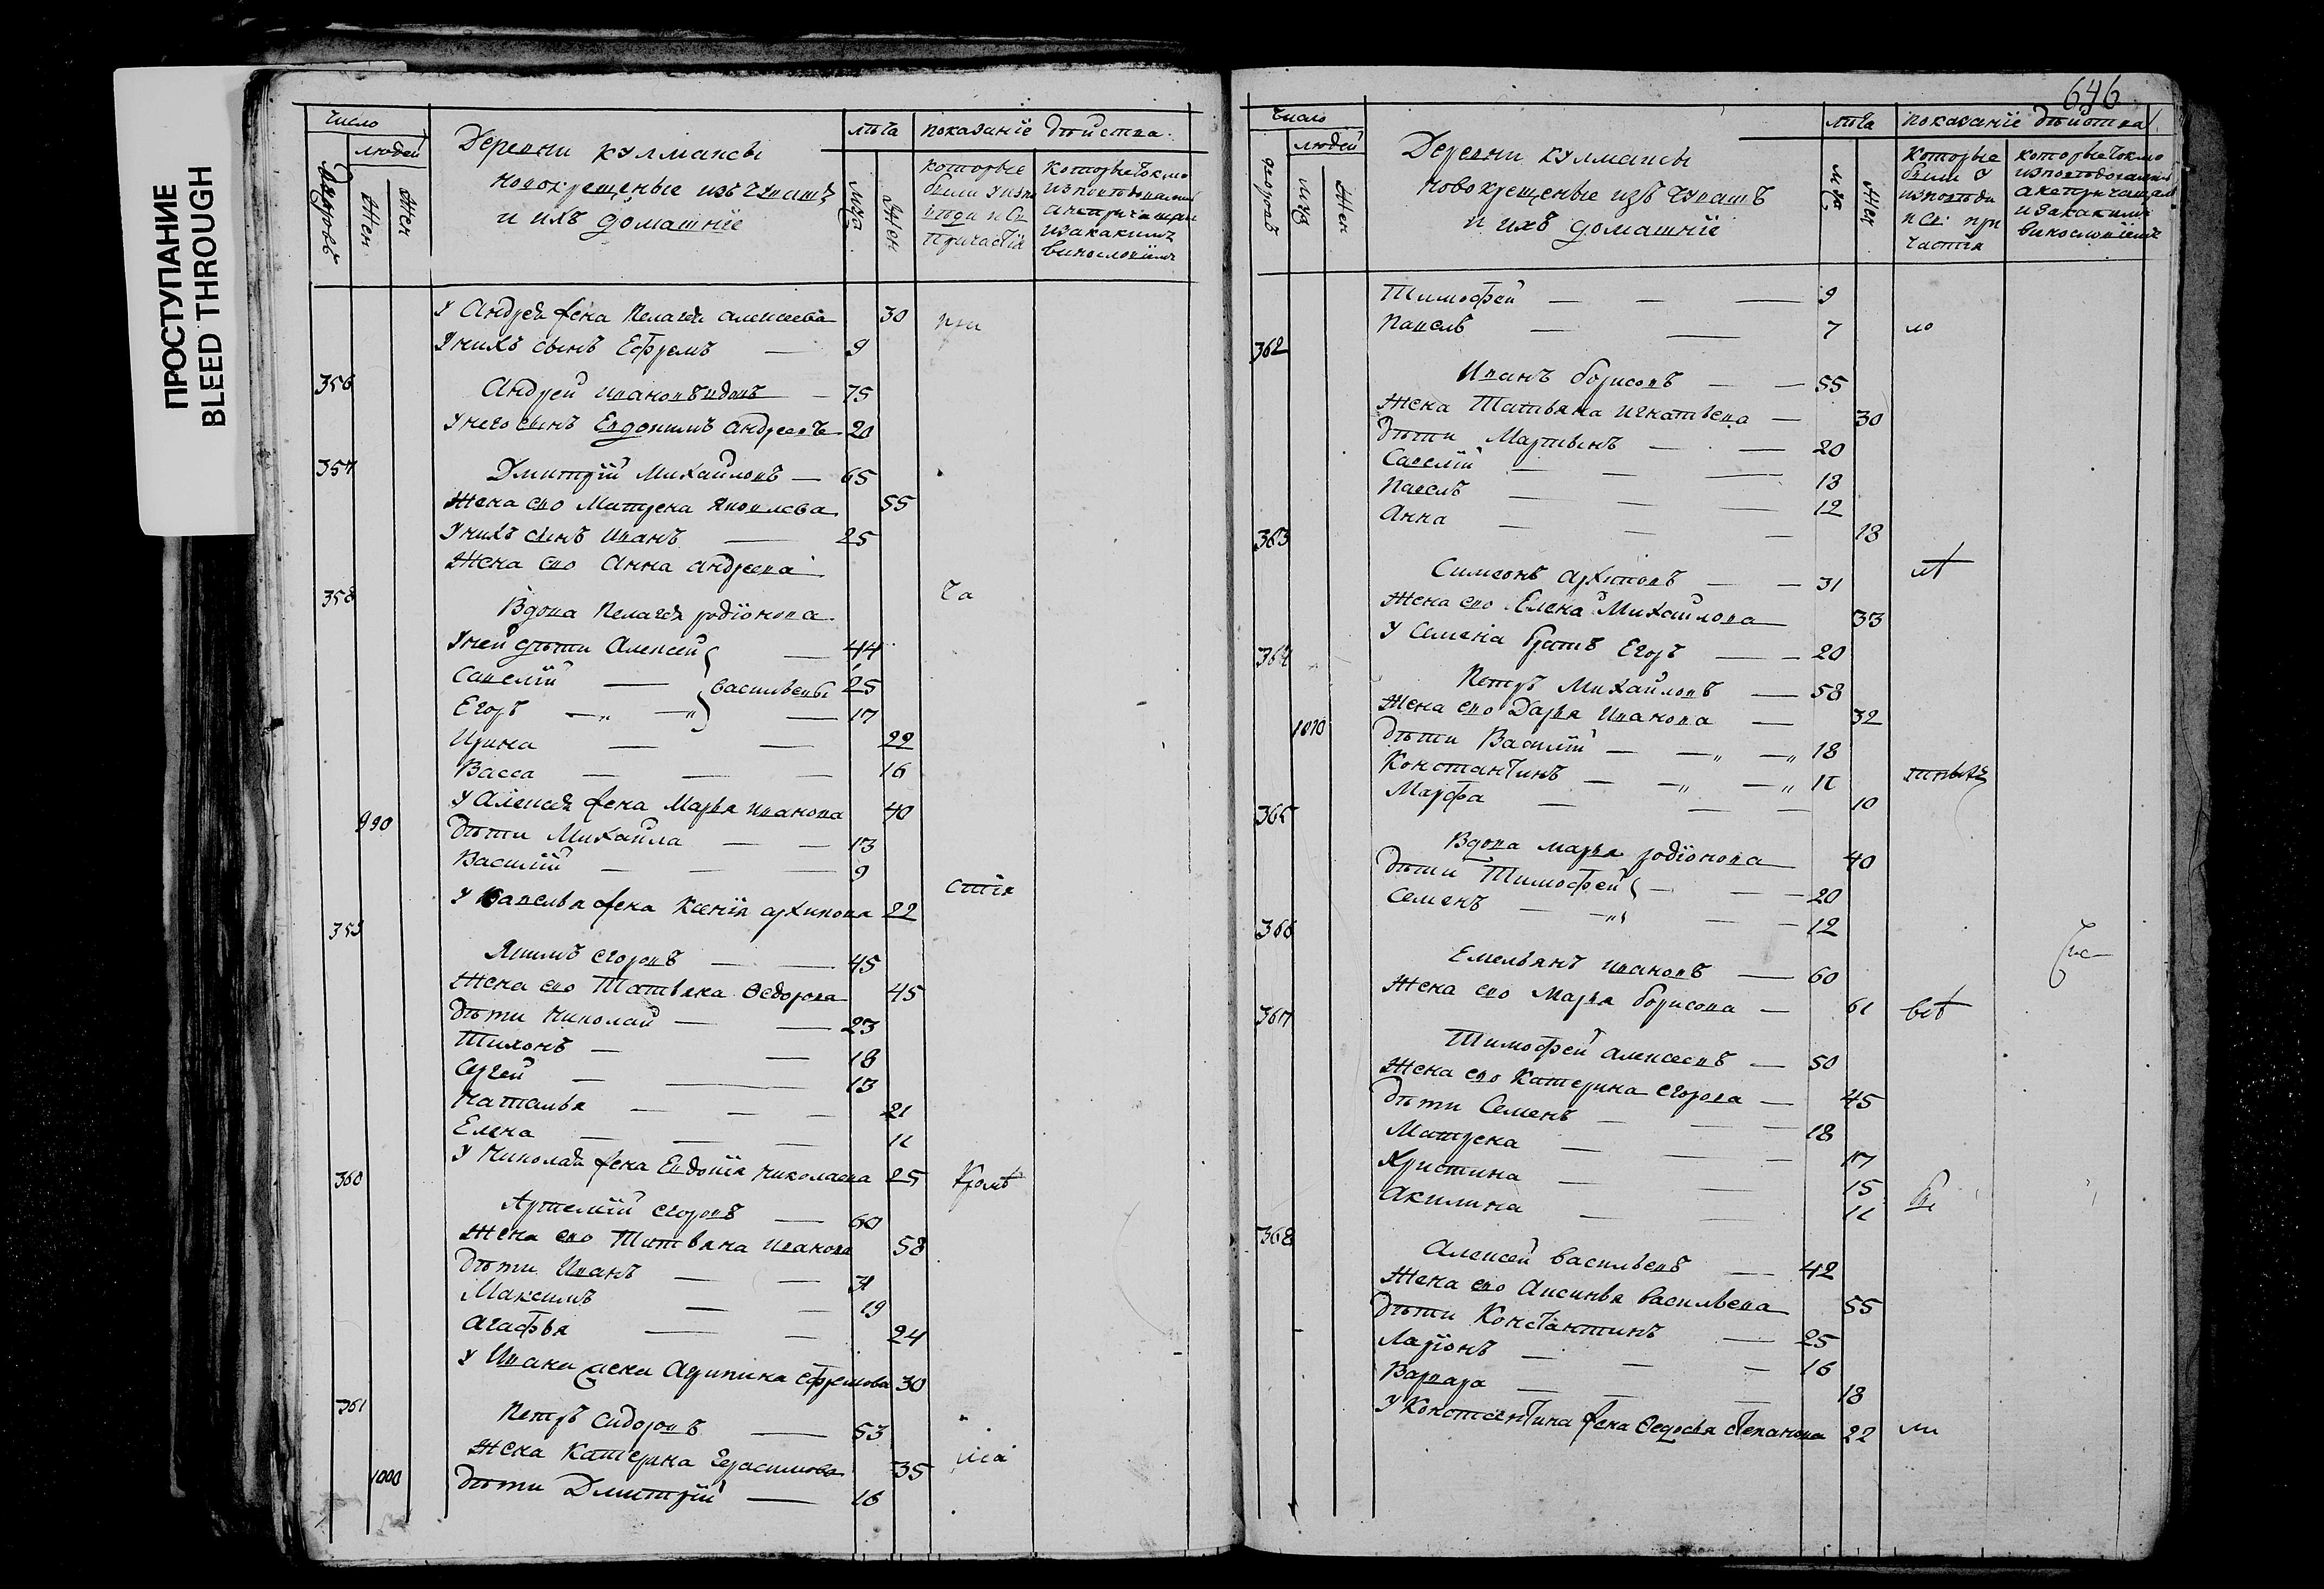 ПРОСТУПАНИЕ
BLEED THROUGH
число
людей
дворовъ
Жен
Деревни кулмаисы
новокрещеные изъ чувашъ
и ихъ домашніе
лѣта
муз
Жен
показаніе дѣиства
которые были у испо вѣди и Св Причастія
которые токмо исповѣдовались а не причащали и за какимъ винословіемъ
У Андрея жена Пелагея алексеева 30 при
У нихъ сынъ Ефремъ — 9
356
Андрей ивановъ вдовъ — 75
У него сынъ Евдокимъ андреевъ 20
357
Дмитрій Михаиловъ — 65
Жена ево Матрена яковлева 55
У нихъ сынъ Иванъ — 25
Жена ево Анна андреева
358 ча
Вдова Пелагея родіонова
У ней дѣти Алексей — 44
Савелій — васильевы 25
Егоръ — 17
Ирина — — 22
Васса — — — 16
У Алексея жена Марья иванова 40
990
дѣти Михаила — — 13
Василій — — — 9
стія
У Савелья жена Ксенія архипова 22
359
Якимъ егоровъ — — 45
Жена ево Татьяна Ѳедорова 45
дѣти Николай — — 23
Тихонъ — — 18
Сергей — — 13
Наталья — — — 21
Елена — — — 11
У Николая жена Евдокія николаева 25 Кромѣ
360
Артемій егоровъ — 60
Жена ево Татьяна иванова 58
дѣти Иванъ — — 31
Максимъ — — 19
Агафья — — 24
У Ивана жена Агрипина ефремова 30
361
Петръ сидоровъ — 53
Жена Катерина Герасимова 35
1000
дѣти Дмитрій — 16
646
число
людей
дворовъ
муз
Жен
Деревни кулмаисы
новокрещеные изъ чувашъ
и ихъ домашніе
лѣта
муз
Жен
показаніе дѣиства
которые были у исповѣди и св: при частія
которые токмо исповѣдовались а не причащал и за какимъ винословіемъ
Тимофей — — — 9
Павелъ — — 7 ло
362
Иванъ борисовъ — — 55
Жена Татьяна игнатьева — 30
дѣти Мартынъ — — 20
Савелій — — — 13
Павелъ — — 12
Анна — — — 18
363
Симеонъ архиповъ — — 31
Жена ево Елена Михаилова 33
У Семена братъ Егоръ — — 20
364
Петръ Михаиловъ — 58
Жена ево Дарья Иванова — 32
1010
дѣти Василій — — — 18
Константинъ — — — 11
Марфа — — — 10
365
Вдова марья родіонова 40
дѣти Тимофей — — — 20
Семенъ — — — — 12
366
Емельянъ ивановъ — 60
Жена ево Марья борисова — 61
367
Тимофей алексеевъ — 50
Жена ево Катерина егорова — 45
дѣти Семенъ — — — 18
Матрена — — — 17
Христина — — 15
Акилина — — 11
368
Алексей васильевъ — 42
Жена ево Аксинья васильева 55
дѣти Константинъ — 25
Ларіонъ — — — 16
Варвара — — — 18
У Константина жена Ѳедосья степанова 22 ли